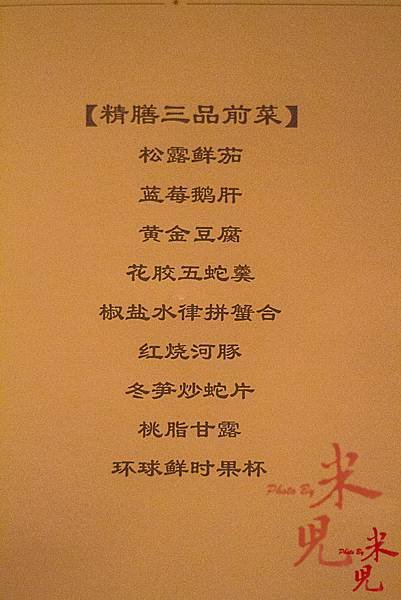 【精膳三品前菜】
松露鲜茄
蓝莓鹅肝
黄金豆腐
花胶五蛇羹
椒盐水律拼蟹合
红烧河豚
冬笋炒蛇片
桃脂甘露
环球鲜时果杯
Photo By 米兒
Photo By 米兒